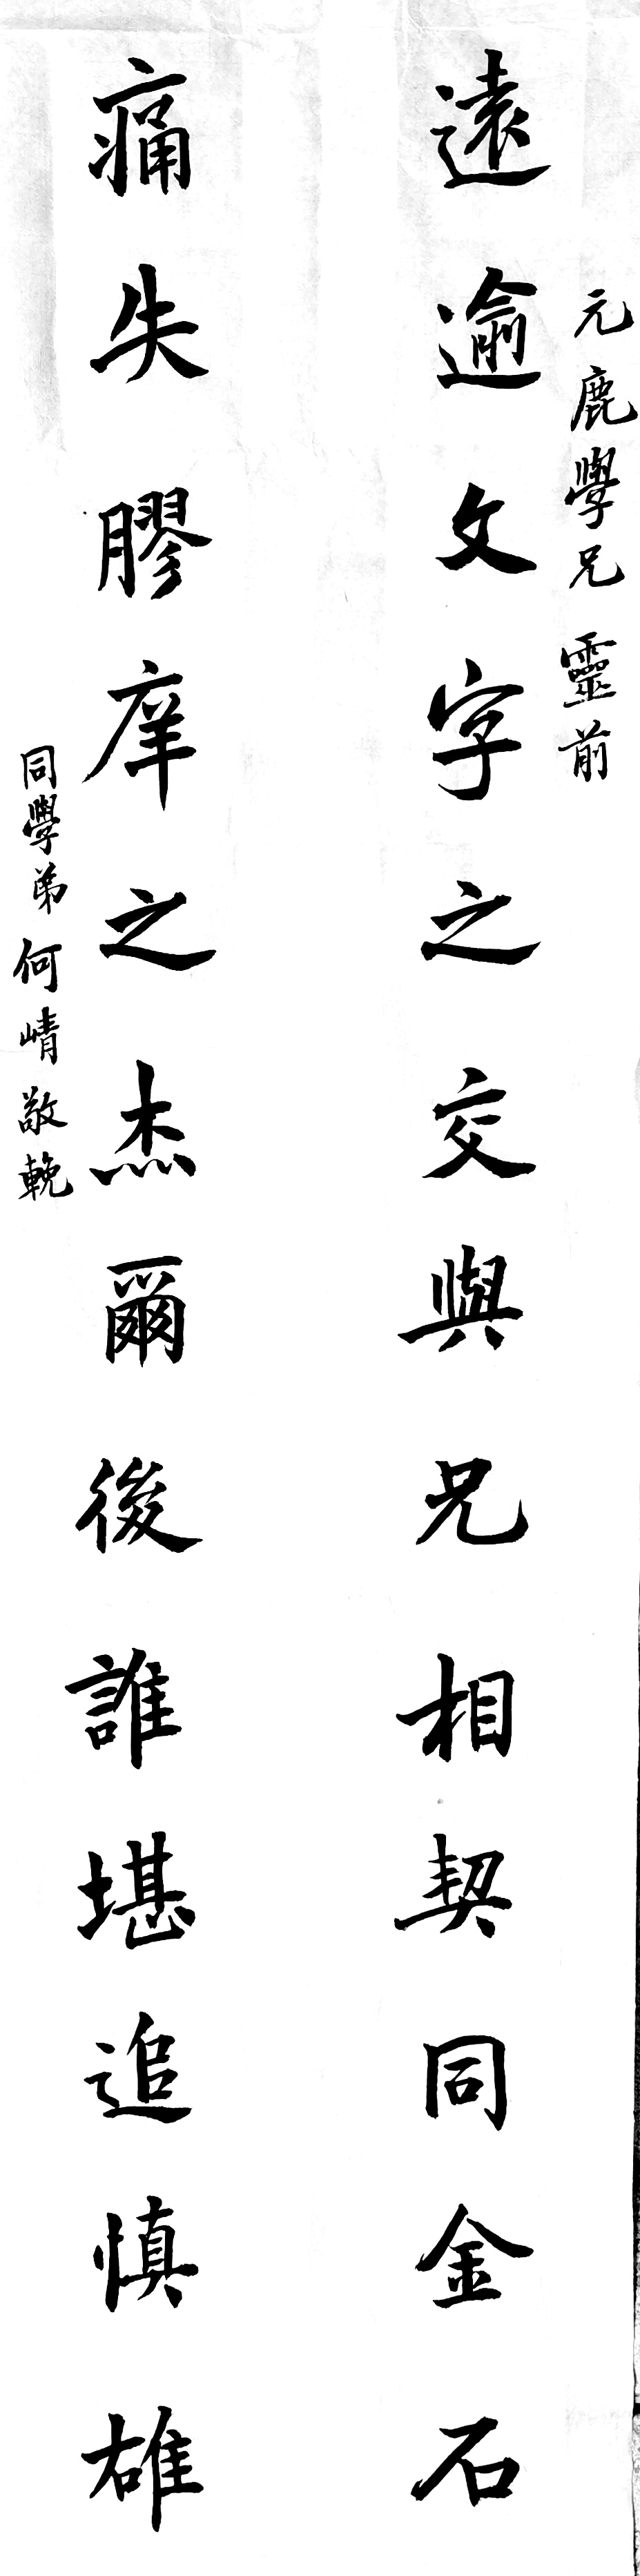 元鹿學兄靈前
遠逾文字之交與兄相契同金石
痛失膠庠之杰爾後誰堪追慎雄
同學弟何崝敬輓